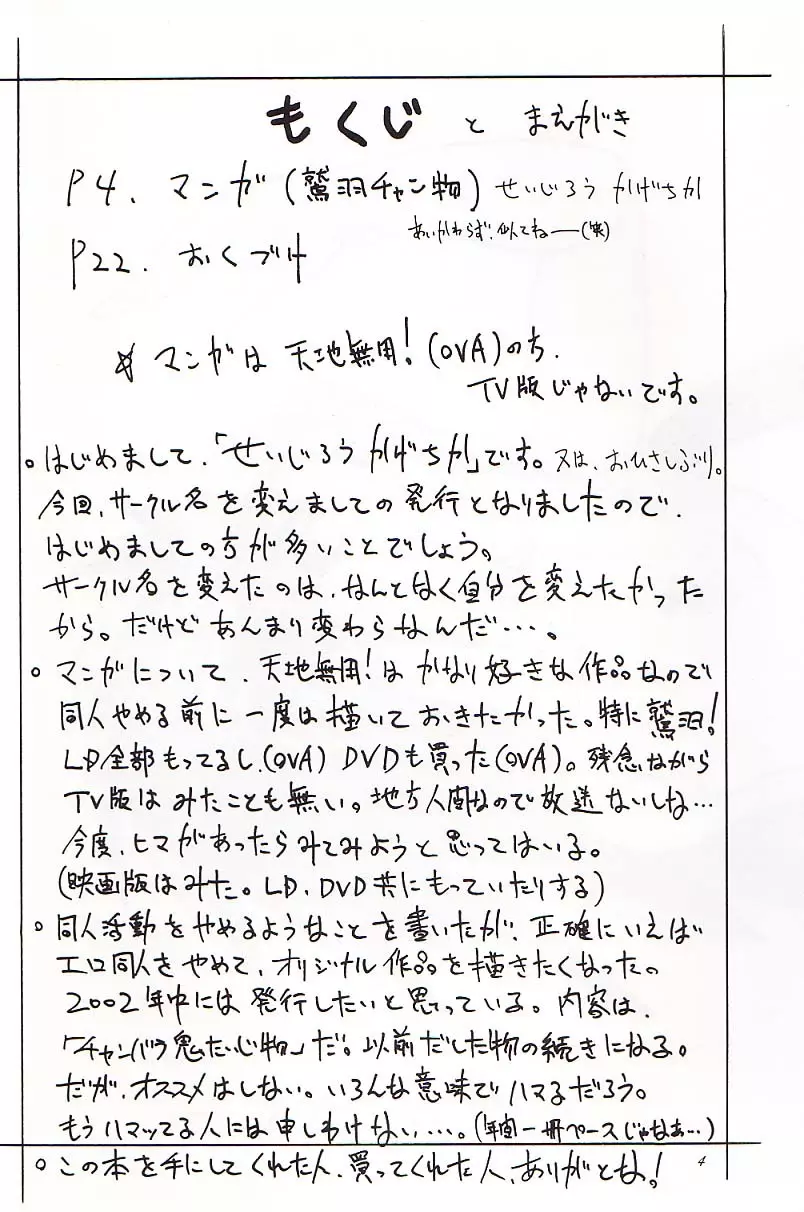 もくじ と まえがき
P4. マンガ(鷲羽チャン物) せいじろう かげちか
あいかわらず、似てねー(笑)
P22. おくづけ
☆ マンガは 天地無用!(OVA)のち.
TV版じゃないです。
○はじめまして.「せいじろう かげちか」です。又は、おひさしぶり。
今回、サークル名を変えましての発行となりましたので、
はじめましての方が多いことでしょう。
サークル名を変えたのは、なんとなく自分を変えたかった
から。だけど あんまり変わらなんだ…。
○ マンガについて、天地無用!は かなり好きな作品なので
同人やめる前に一度は描いておきたかった。特に鷲羽!
LD全部もってるし、(OVA) DVDも買った(OVA)。残念ながら
TV版はみたことも無い。地方人間なので放送ないしね…
今度、ヒマがあったらみてみようと思ってはいる。
(映画版はみた。LD、DVD共にもっていたりする)
○ 同人活動をやめるようなことを書いたが、正確にいえば
エロ同人をやめて、オリジナル作品を描きたくなったの。
2002年中には発行したいと思っている。内容は、
「チャンバラ鬼たいじ物」だ。以前だした物の続きになる。
だが、オススメはしない。いろんな意味でハマるだろう。
もうハマッてる人には申しわけない…。(年間一冊ペースじゃなぁ…)
○ この本を手にしてくれた人、買ってくれた人、ありがとな!
4